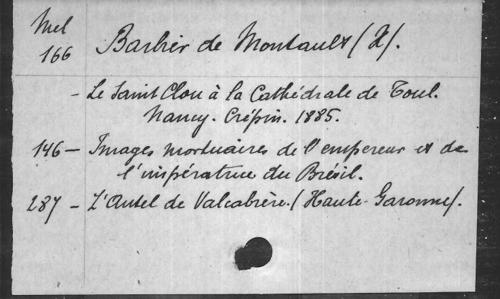 Mel
166
Barbier de Montault (X).
- Le Saint Clou à la Cathédrale de Toul.
Nancy. Crépin. 1885.
146 - Images mortuaires de l'empereur et de
l'impératrice du Brésil.
287 - L'Autel de Valcabrère. (Haute-Garonne).